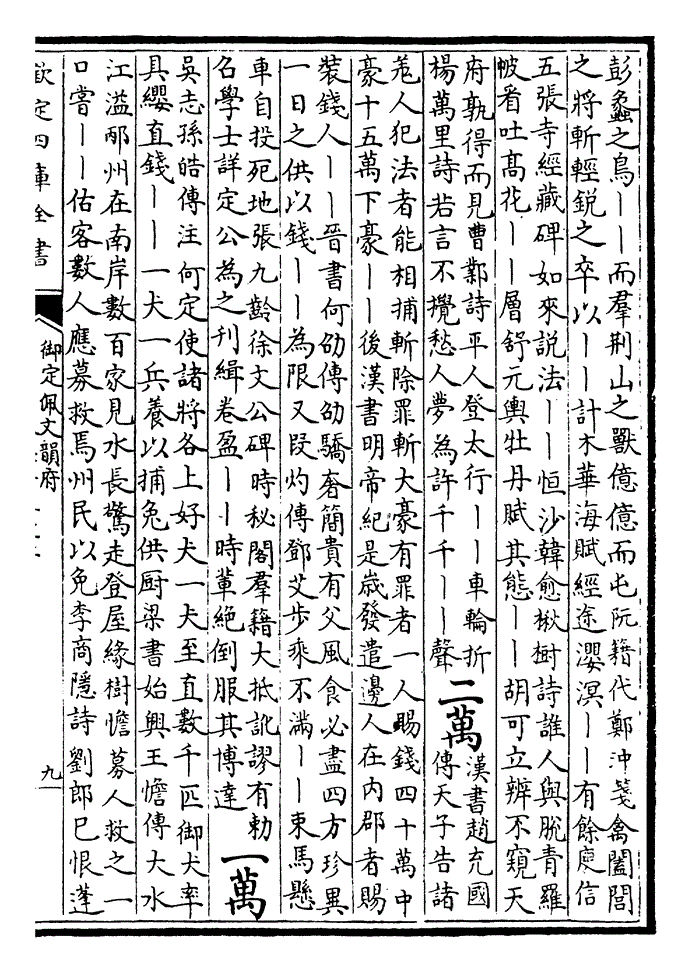 彭蠡之鳥丨丨而羣荆山之獸億億而屯阮籍代鄭沖箋禽闔閭
之將斬輕鋭之卒以丨丨計木華海賦經途瀴溟丨丨有餘庾信
五張寺經藏碑如來説法丨丨恒沙韓愈楸樹詩誰人與脱青羅
帔看吐髙花丨丨層舒元輿牡丹賦其態丨丨胡可立辨不窺天
府孰得而見曹鄴詩平人登太行丨丨車輪折
楊萬里詩若言不攪愁人夢為許千千丨丨聲
二萬
漢書趙充國
傳天子告諸
羌人犯法者能相捕斬除罪斬大豪有罪者一人賜錢四十萬中
豪十五萬下豪丨丨後漢書明帝紀是嵗發遣邊人在内郡者賜
裝錢人丨丨晉書何劭傳劭驕奢簡貴有父風食必盡四方珍異
一日之供以錢丨丨為限又段灼傳鄧艾步乘不滿丨丨束馬懸
車自投死地張九齡徐文公碑時秘閣羣籍大抵訛謬有勅
召學士詳定公為之刊緝卷盈丨丨時輩絶倒服其博達
一萬
吳志孫皓傳注何定使諸將各上好犬一犬至直數千匹御犬率
具纓直錢丨丨一犬一兵養以捕兔供厨梁書始興王憺傳大水
江溢邴州在南岸數百家見水長驚走登屋緣樹憺募人救之一
口嘗丨丨估客數人應募救焉州民以免李商隠詩劉郎已恨蓬
欽定四庫全書
御定佩文韻府
九